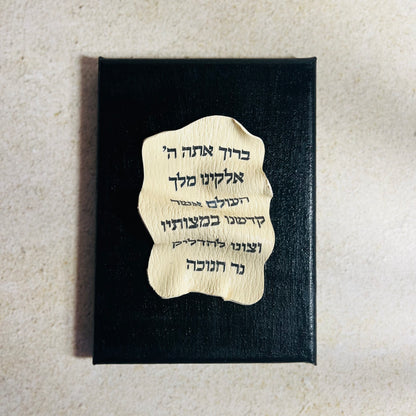 ברוך אתה ה'
אלקינו מלך
העולם אשר
קדשנו במצותיו
וצונו להדליק
נר חנוכה